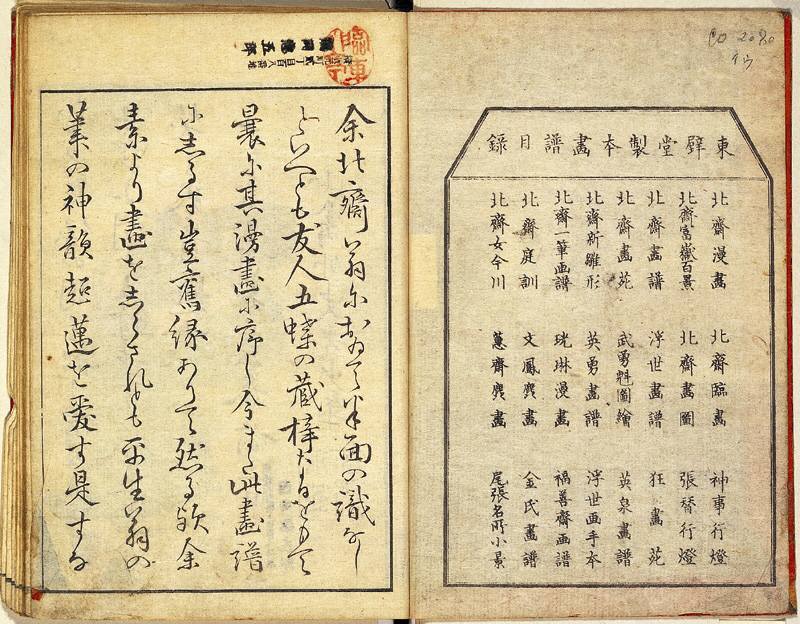 東壁堂製本畫譜目錄
北齋漫畫 北齋臨畫 神事行燈
北齋富嶽百景 北齋畫圖 張替行燈
北齋畫譜 浮世畫譜 狂畫苑
北齋畫苑 武勇魁圖繪 英泉畫譜
北齋新雛形 英勇畫譜 浮世画手本
北齋一筆画譜 珖琳漫畫 福善齋画譜
北齋庭訓 文鳳麁畫 金氏畫譜
北齋女今川 蕙齋麁畫 尾張名所小景
余北齋翁におゐて半面の識なし
といへども友人五蝶の蔵梓たるをもて
曩に其漫畫に序し今また此畫譜
に志るす豈舊縁ありて然る歟余
素より畫を志らされとも平生翁の
筆の神韻超邁を愛す是